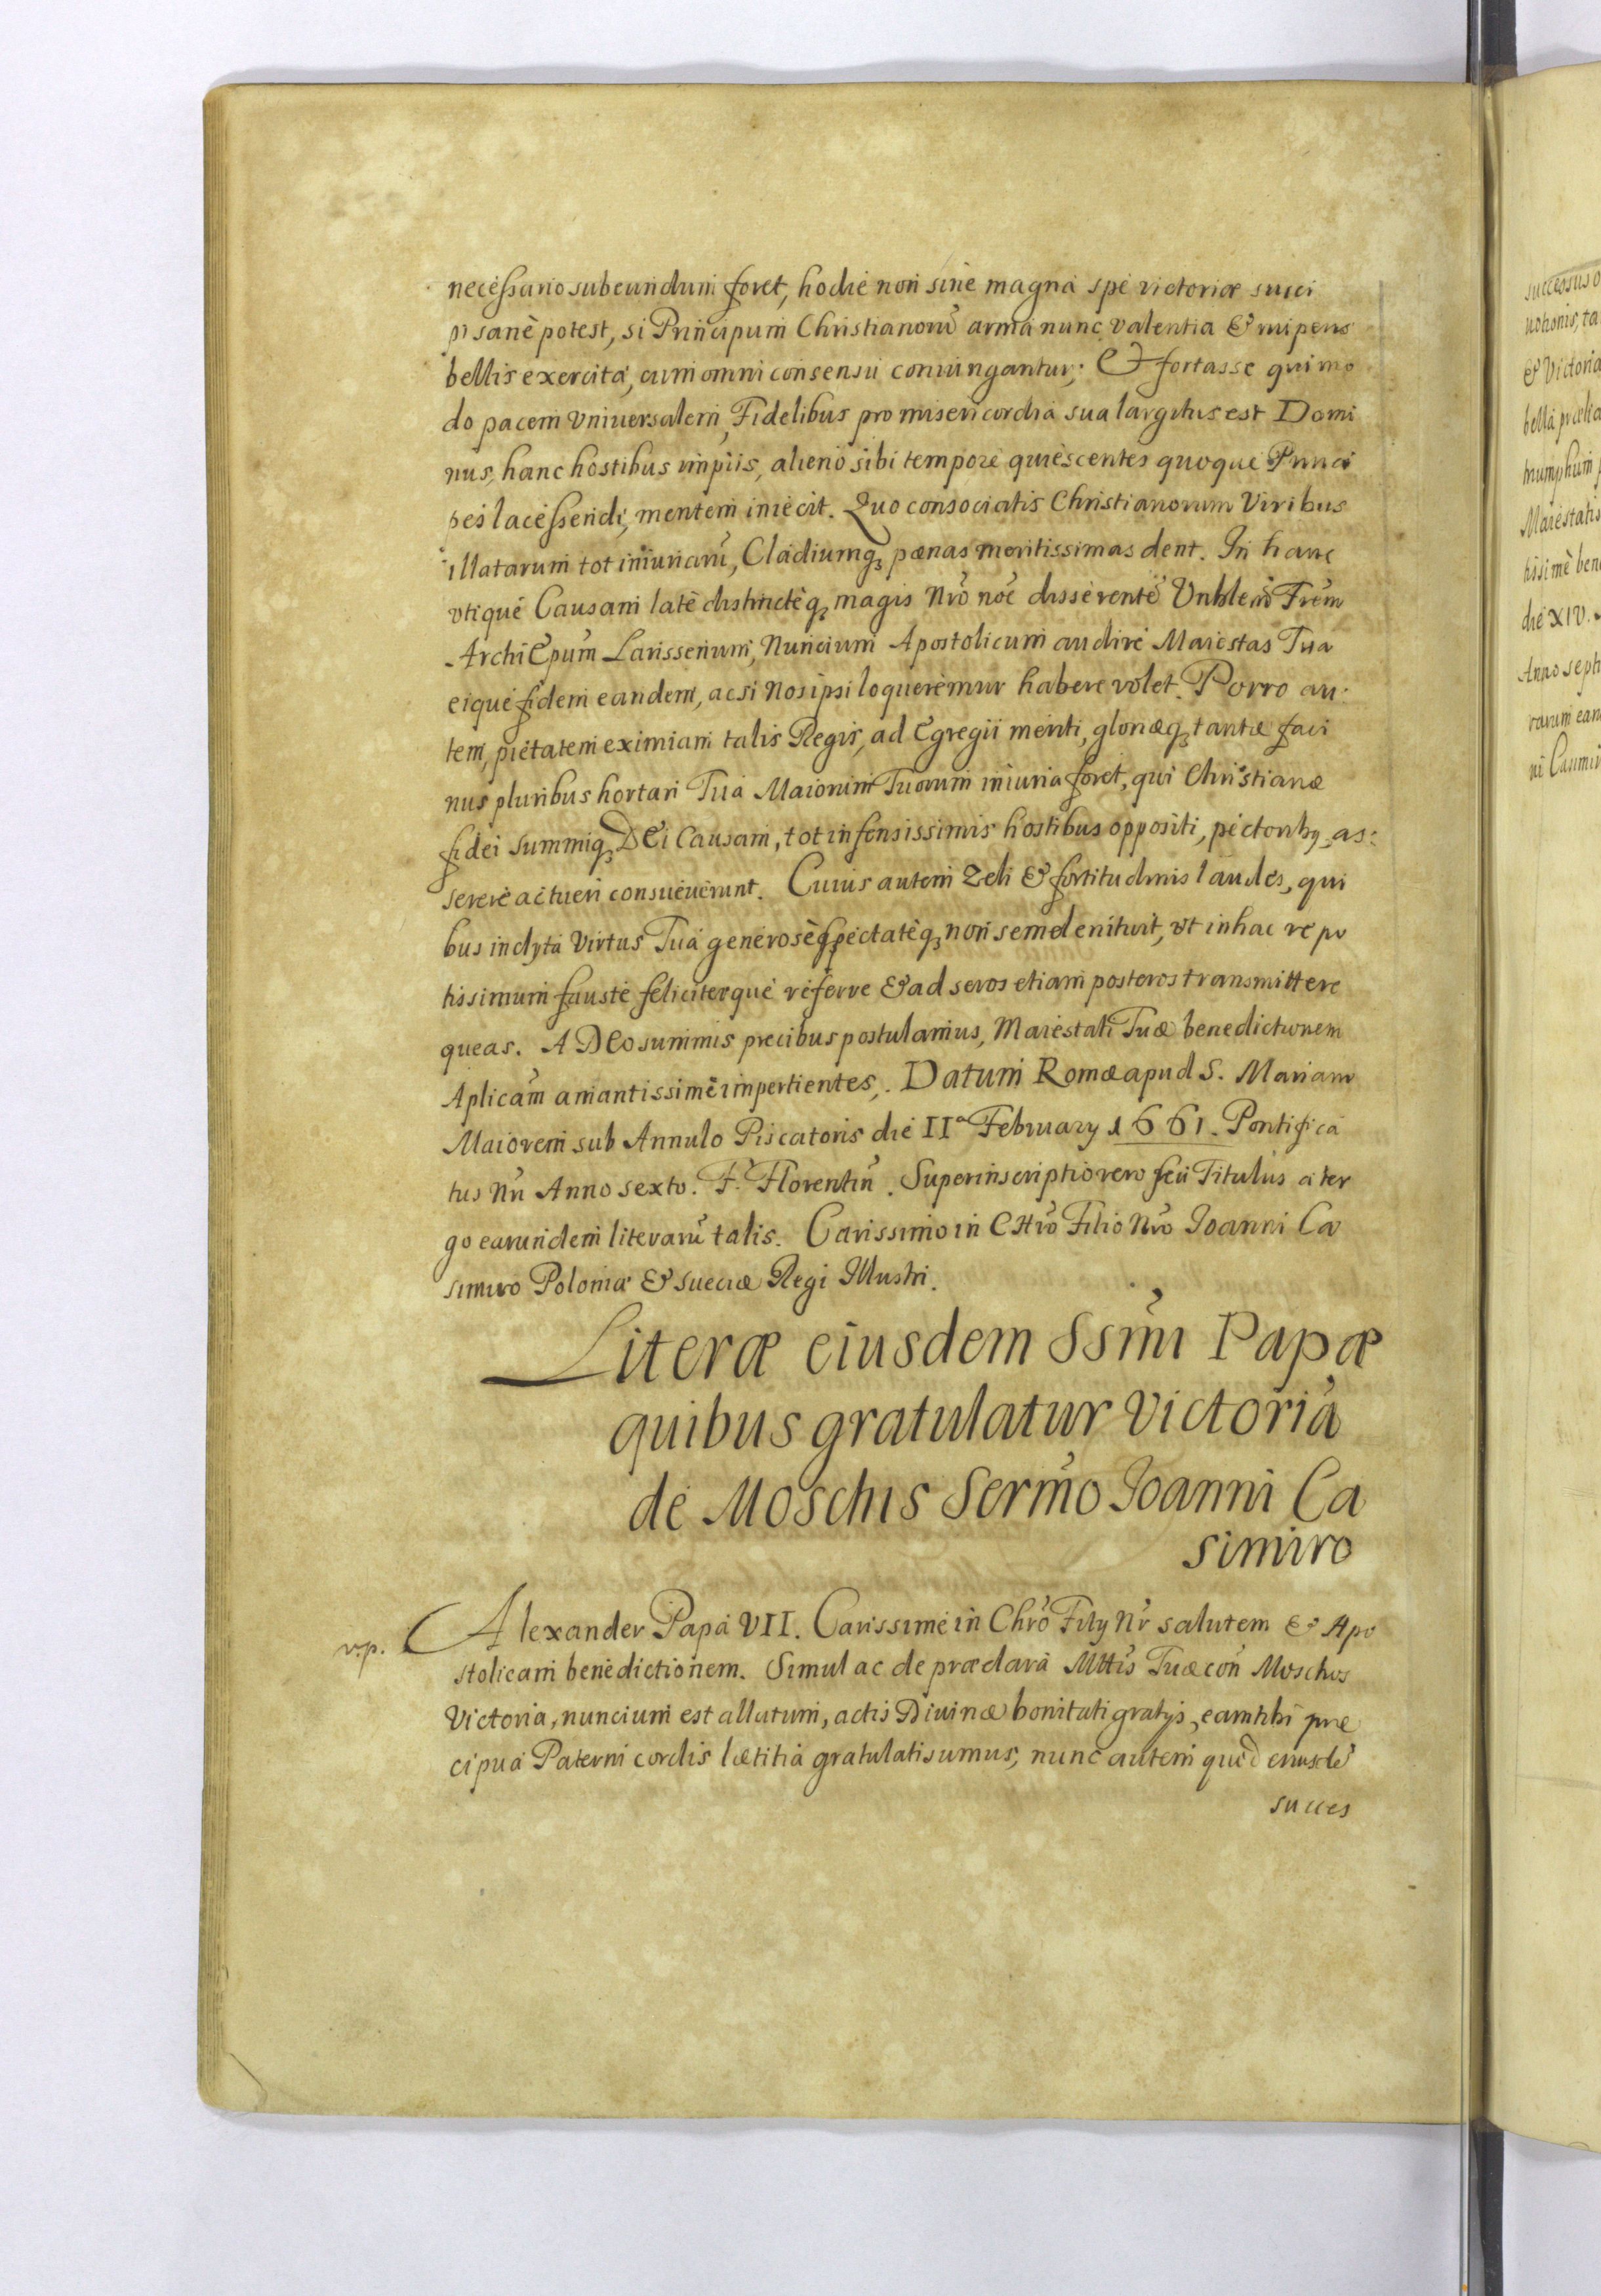 necessario subeundum foret, hodie non sine magna spe victoriæ susci
pi sanè potest, si Principum Christianorũ arma nunc valentia & nuperis
bellis exercita, cum omni consensu coniungantur; Et fortasse qui mo
do pacem vniuersalem, Fidelibus pro misericordia sua largitus est Domi
nus, hanc hostibus impiis, alieno sibi tempore quiescentes quoque Princi
pes lacessendi, mentem iniecit. Quo consociatis Christianorum Viribus
illatarum tot iniuriarũ, Cladiumq3 pænas meritissimas dent. In hanc
vtique Causam latè distinctèq3 magis Nrõ noẽ disserentẽ Vnblem̃ Frem̃
ArchiEpum̃ Larissenum, Nuncium Apostolicum audire Maiestas Tua
eique fidem eandem, acsi Nos ipsi loqueremur habere volet. Porro au:
tem, pietatem eximiam talis Regis, ad Egregii meriti, gloriæq3 tantæ faci
nus pluribus hortari Tua Maiorum Tuorum iniuria foret, qui Christianæ
fidei summiq3 DEi Causam, tot infensissimis hostibus oppositi, pectoribq as:
serere ac tueri consueuerunt. Cuius autem Zeli & fortitudinis laudes, qui
bus inclyta Virtus Tua generosè spectatèq3 non semel enituit, vt in hac re po
tissimum fauste feliciterque referre & ad seros etiam posteros transmittere
queas. A DEo summis precibus postulamus, Maiestati Tuæ benedictionem
Aplicam̃ amantissimè impertientes,. Datum Romæ apud S. Mariam
Maiorem sub Annulo Piscatoris die IIa February 1661. Pontifica
tus Nri Anno sexto. F. Florentin̄. Superinscriptio vero seu Titulus a ter
go earundem literarũ talis. Carissimo in CHrõ Filio Nrõ Joanni Ca
simiro Poloniæ & Sueciæ Regi Illustri.
Literæ eiusdem Ssmĩ Papæ
quibus gratulatur victoriã
de Moschis Sermõ Joanni Ca
simiro
v.p.
Alexander Papa VII. Carissime in Chrõ Fily Nr̃ salutem & Apo
stolicam benedictionem. Simul ac de præclara Mttis̃ Tuæ con̄ Moschos
Victoria, nuncium est allatum, actis Diuinæ bonitati gratijs, eam tibi præ
cipua Paterni cordis lætitia gratulati sumus, nunc autem quod eiusdẽ
succes